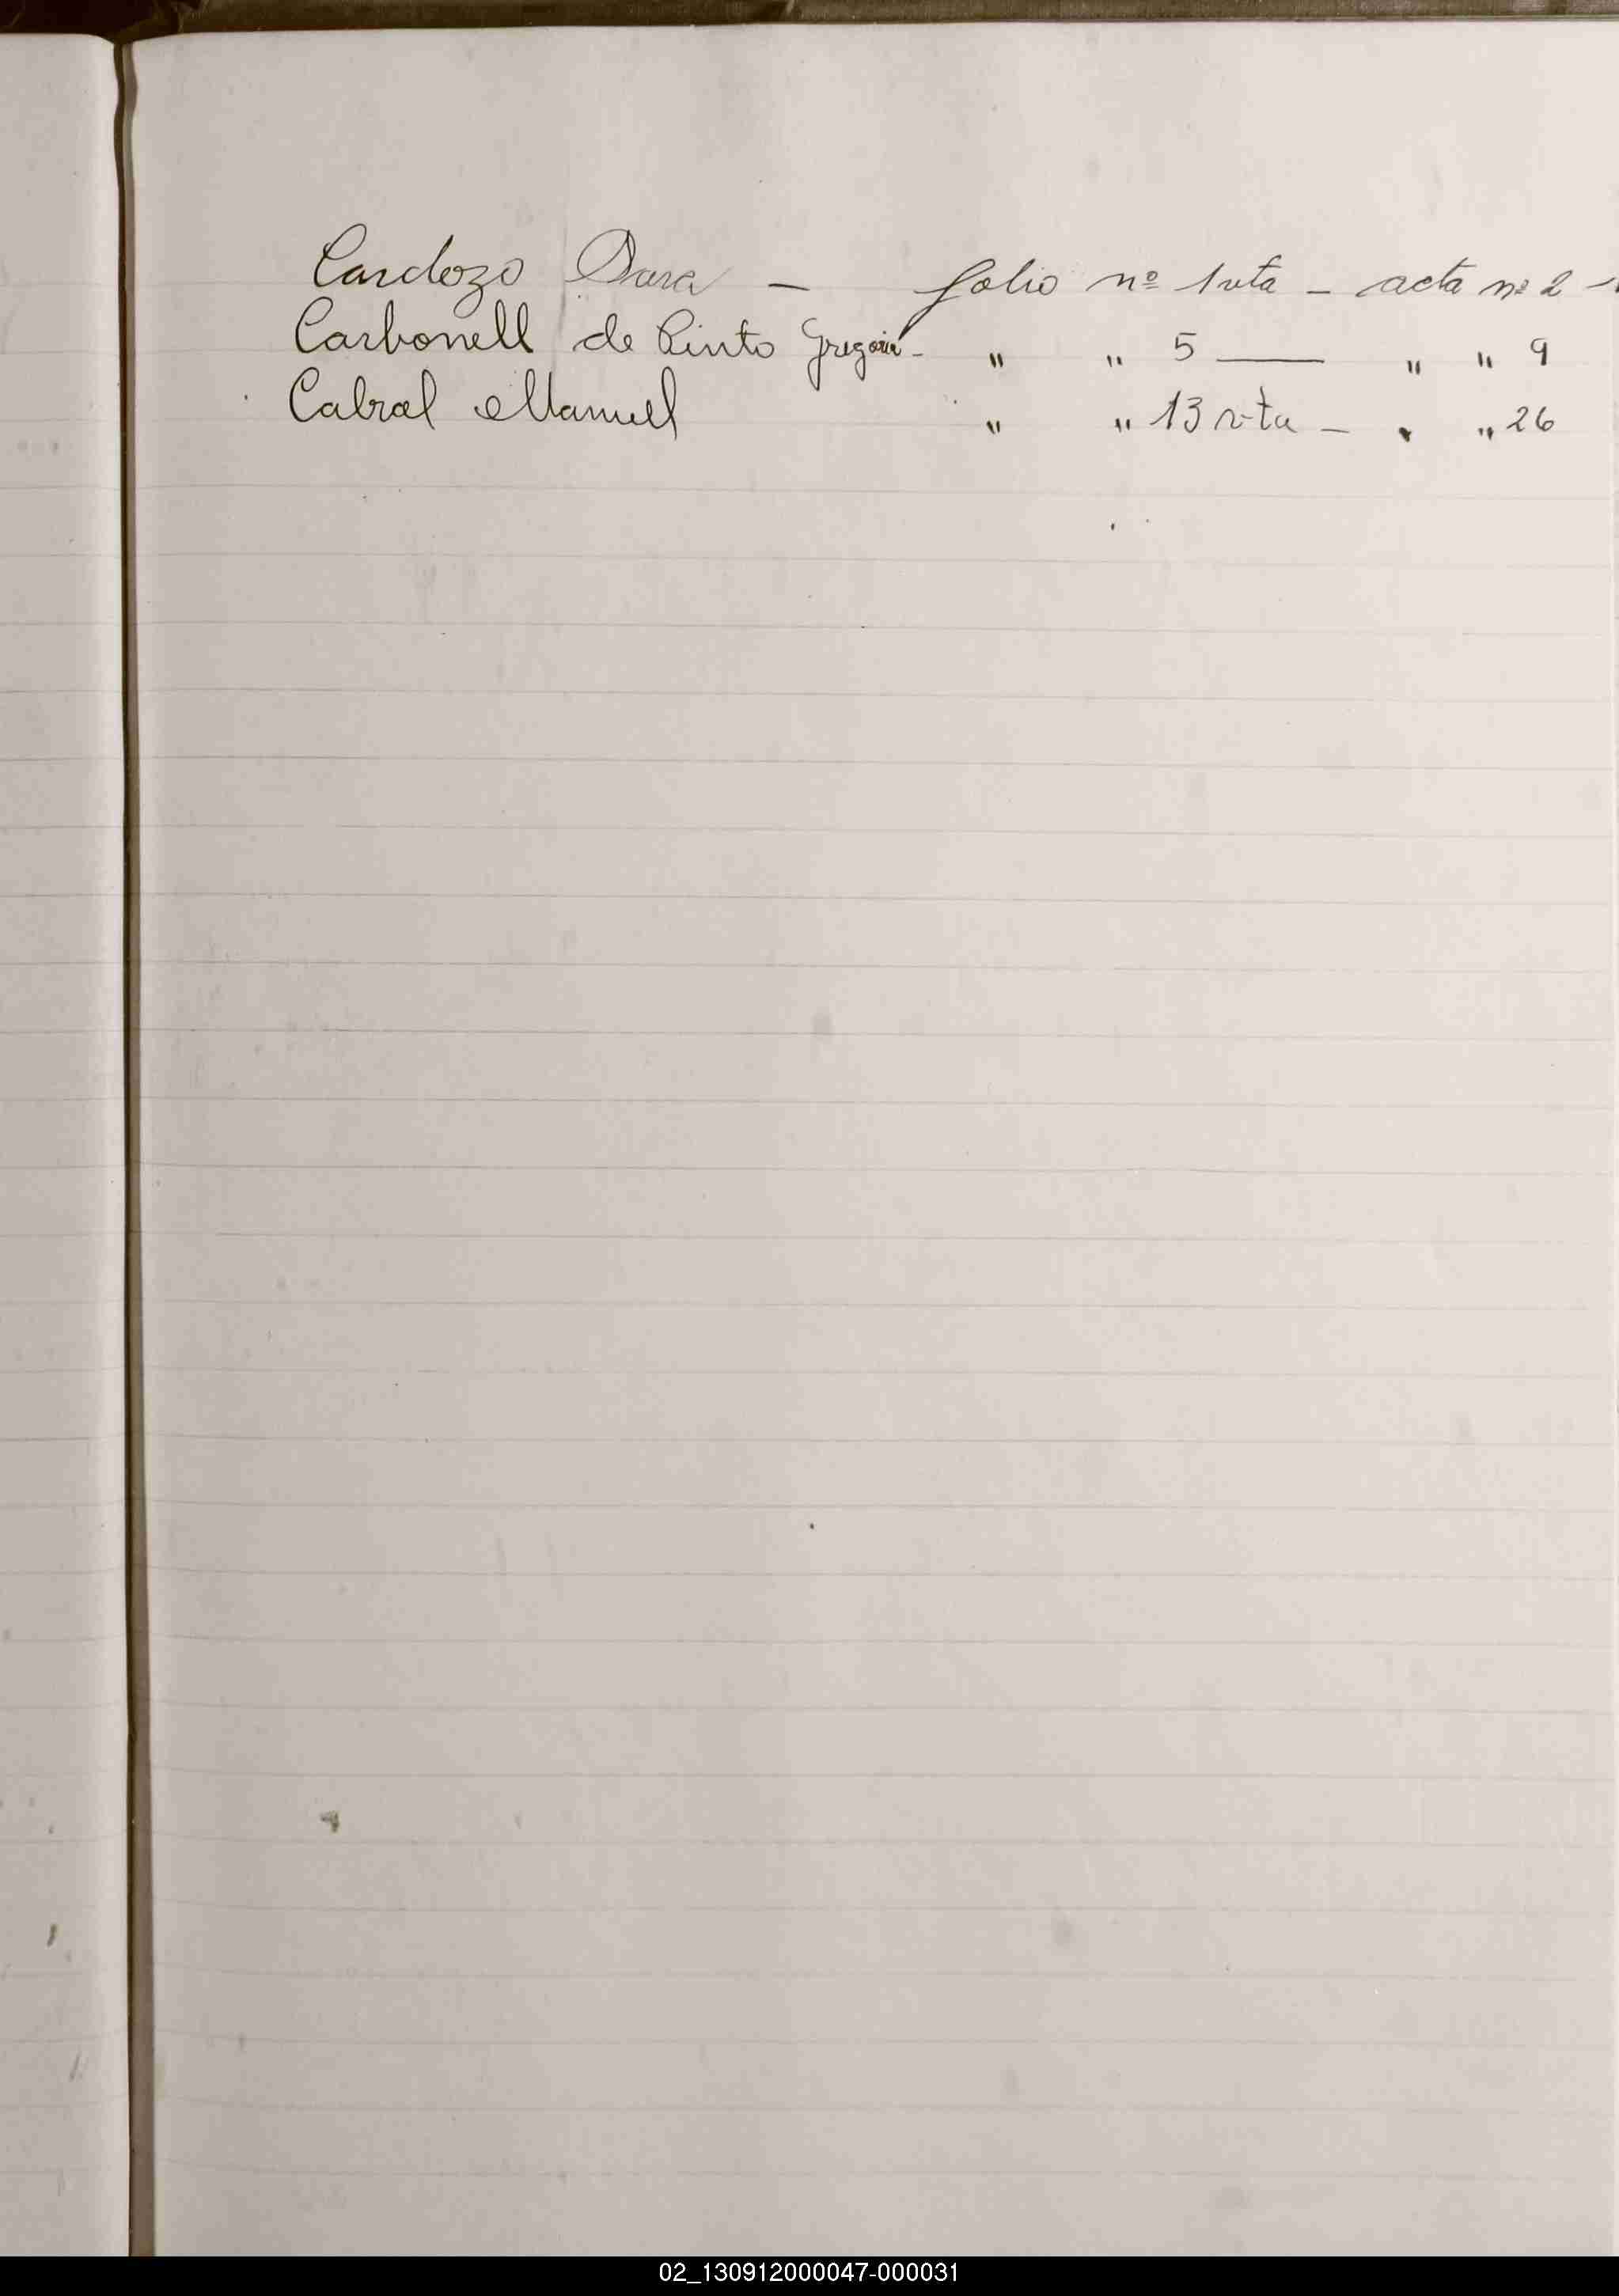 Cardozo Dora — folio nº 1 vta — acta nº 2 -
Carbonell de Pinto Gregoria - " " 5 — " " 9
Cabral Manuel " " 13 vta — " " 26
02_130912000047-000031